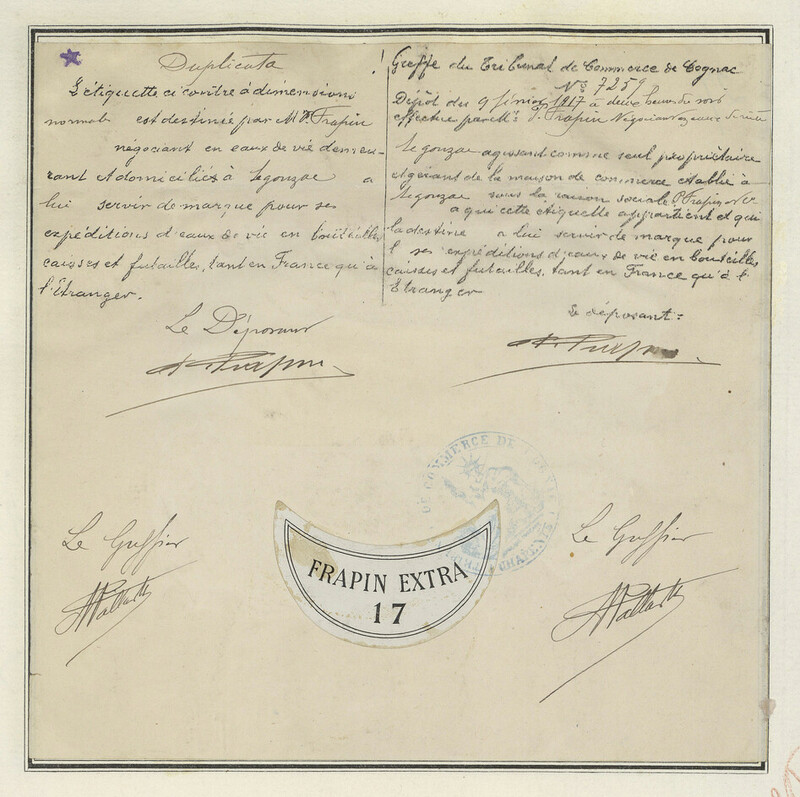 Duplicata
L'étiquette ci contre à dimensions
normale est destinée par M. P. Frapin
négociant en eaux de vie demeu-
rant et domicilié à Segonzac a
lui servir de marque pour ses
expéditions d'eaux de vie en bouteilles
caisses et futailles, tant en France qu'à
l'étranger.
Le Déposant
P. Frapin
Greffe du Tribunal de Commerce de Cognac
No 7259
Dépôt du 9 à deux heures du soir
effectué par M. P. Frapin Négociant
Segonzac agissant comme seul propriétaire
et gérant de la maison de commerce établie à
Segonzac sous la raison sociale P. Frapin et Cie
a qui cette étiquette appartient et qui
la destine a lui servir de marque pour
ses expéditions d'eaux de vie en bouteilles
caisses et futailles, tant en France qu'à l'
Etranger
Le déposant :
P. Frapin
COMMERCE DE
Le Greffier
FRAPIN EXTRA
17
Le Greffier